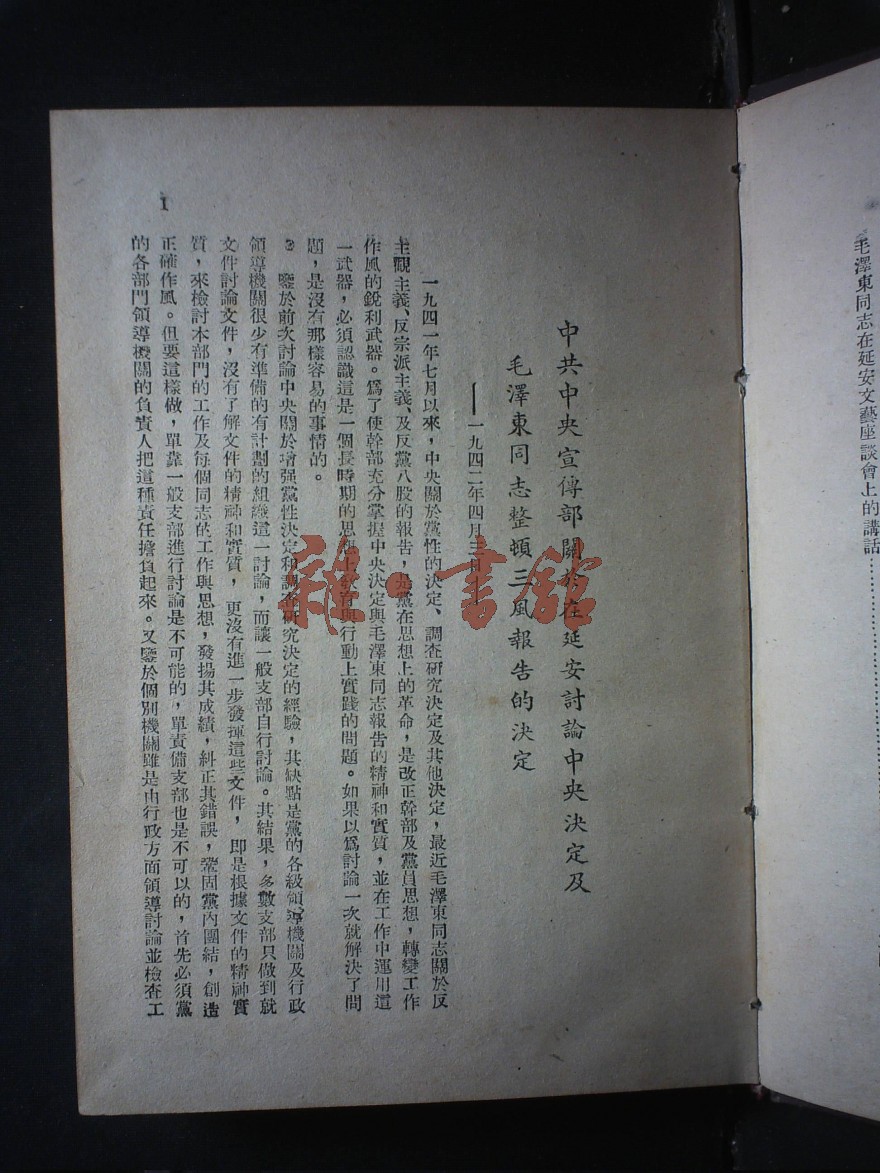 毛澤東同志在延安文藝座談會上的講話
中共中央宣傳部關於在延安討論中央決定及
毛澤東同志整頓三風報告的決定
——一九四二年四月三日
一九四一年七月以來，中央關於黨性的決定、調查研究決定及其他決定，最近毛澤東同志關於反
主觀主義、反宗派主義、及反黨八股的報告，是黨在思想上的革命，是改正幹部及黨員思想，轉變工作
作風的銳利武器。爲了使幹部充分掌握中央決定與毛澤東同志報告的精神和實質，並在工作中運用這
一武器，必須認識這是一個長時期的思想上教育與行動上實踐的問題。如果以爲討論一次就解決了問
題，是沒有那樣容易的事情的。
鑒於前次討論中央關於增强黨性決定和調查研究決定的經驗，其缺點是黨的各級領導機關及行政
領導機關很少有準備的有計劃的組織這一討論，而讓一般支部自行討論。其結果，多數支部只做到就
文件討論文件，沒有了解文件的精神和實質，更沒有進一步發揮這些文件，即是根據文件的精神實
質，來檢討本部門的工作及每個同志的工作與思想，發揚其成績，糾正其錯誤，鞏固黨內團結，創造
正確作風。但要這樣做，單靠一般支部進行討論是不可能的，單責備支部也是不可以的，首先必須黨
的各部門領導機關的負責人把這種責任擔負起來。又鑒於個別機關雖是由行政方面領導討論並檢查工
1
雜·書館